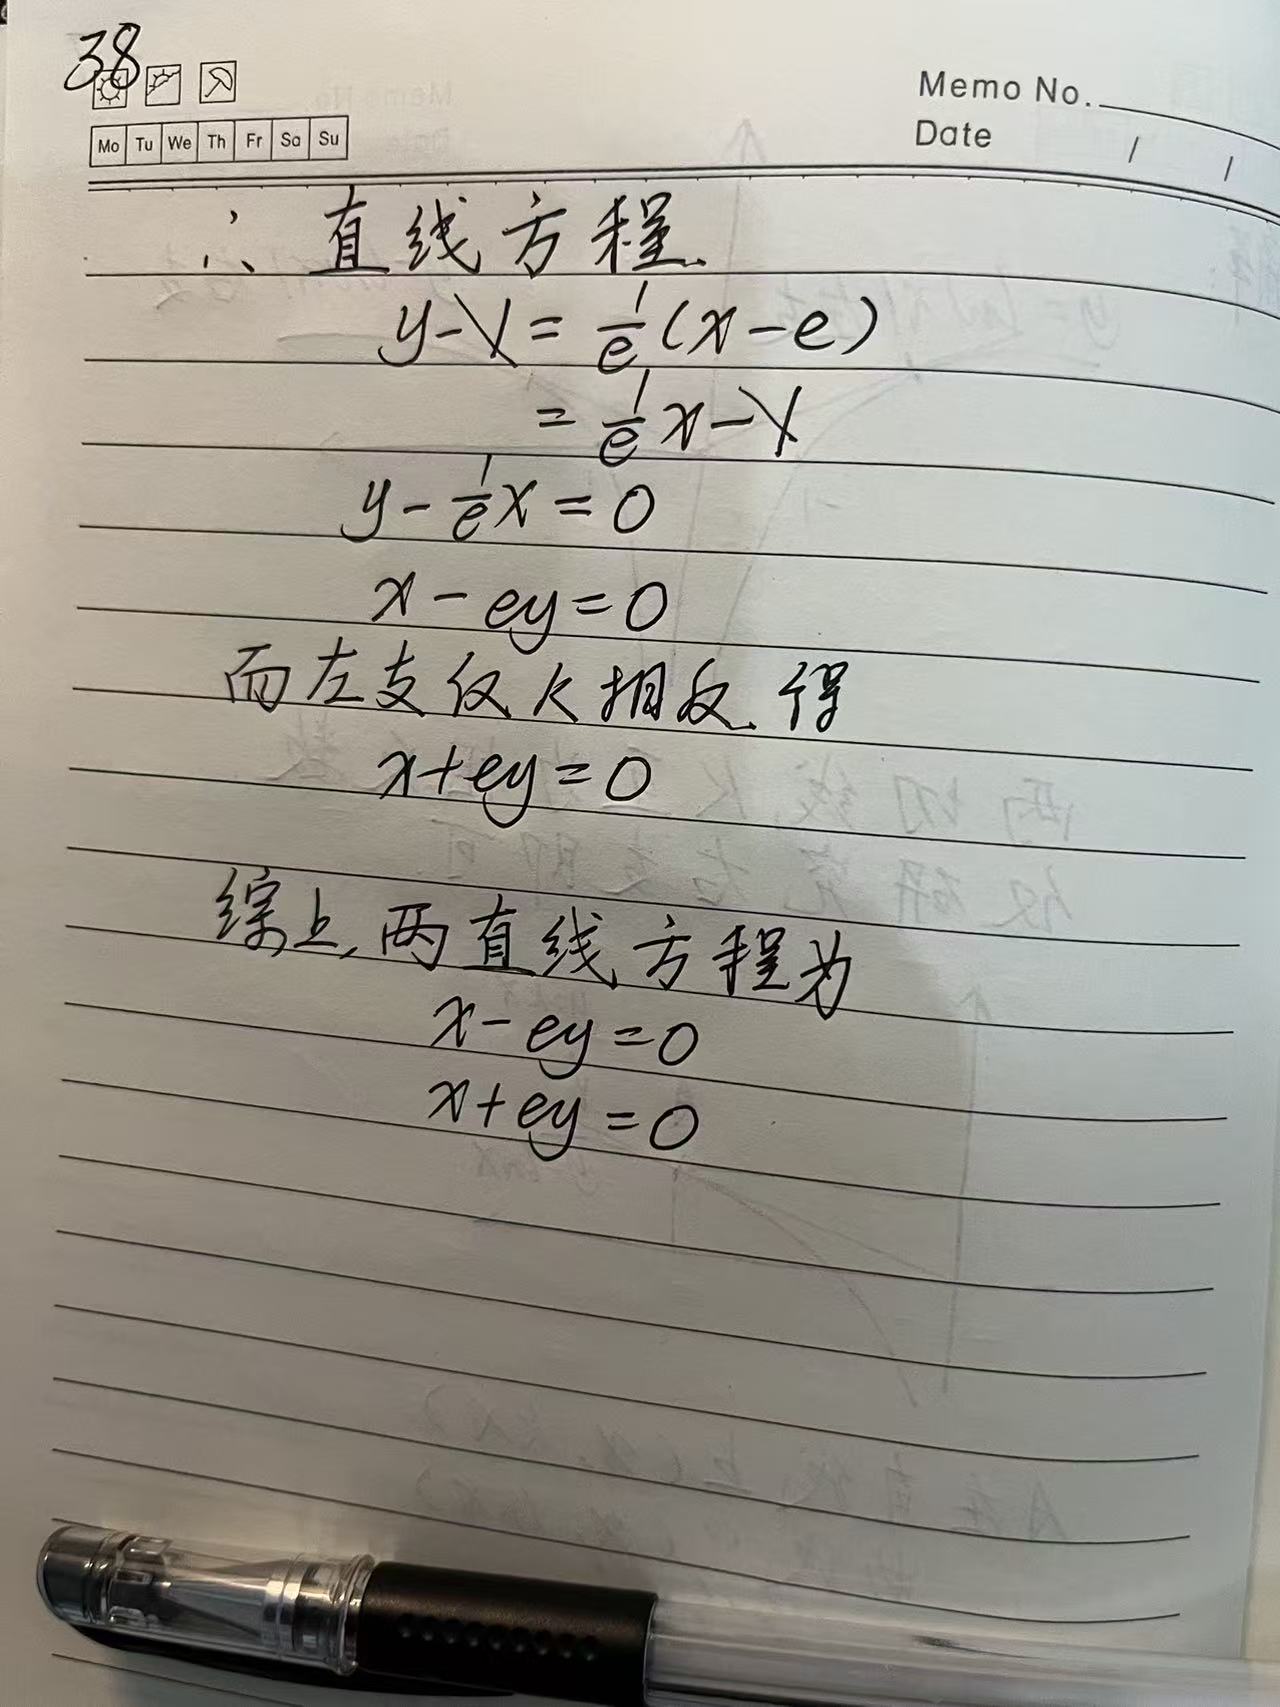 38
Memo No.
Mo Tu We Th Fr Sa Su
Date / /
∴ 直线方程.
y-1=1/e(x-e)
=1/e x-1
y-1/e x=0
x-ey=0
而左支仅K相反.得
x+ey=0
综上,两直线方程为
x-ey=0
x+ey=0